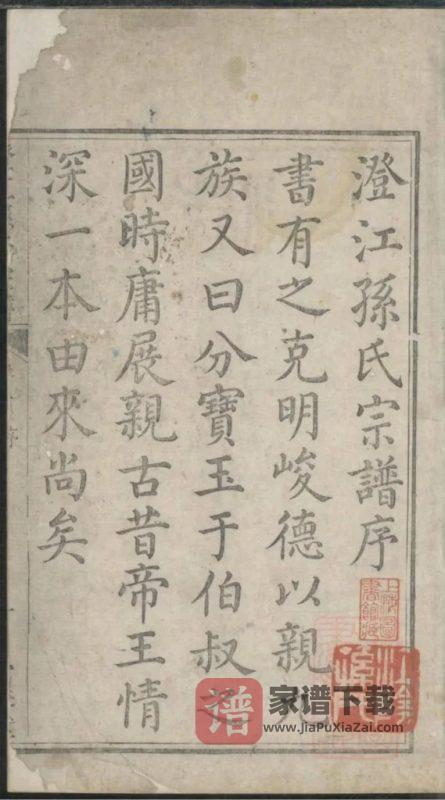 澄江孫氏宗譜序
書有之克明峻德以親九
族又曰分寶玉于伯叔之
國時庸展親古昔帝王情
深一本由來尚矣
上海圖書館藏
谱 家谱下载
www.jiaPuXiaZai.com